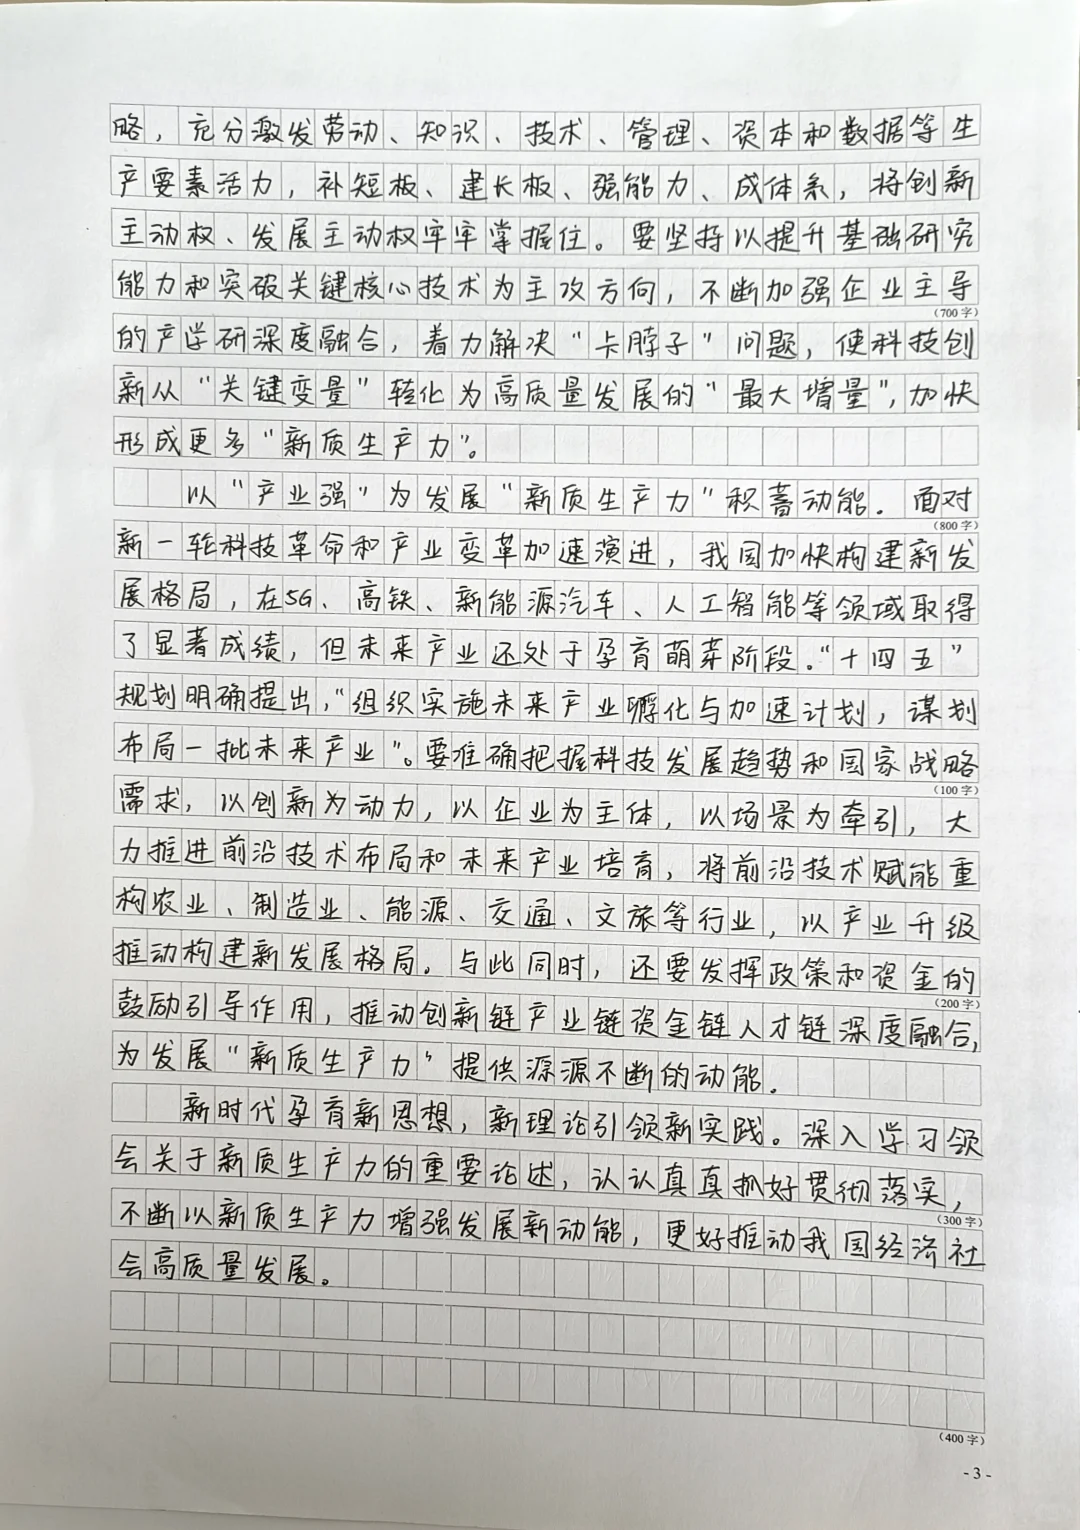 略，充分激发劳动、知识、技术、管理、资本和数据等生
产要素活力，补短板、建长板、强能力、成体系，将创新
主动权、发展主动权牢牢掌握住。要坚持以提升基础研究
能力和突破关键核心技术为主攻方向，不断加强企业主导
(700字)
的产学研深度融合，着力解决“卡脖子”问题，使科技创
新从“关键变量”转化为高质量发展的“最大增量”，加快
形成更多“新质生产力”。
以“产业强”为发展“新质生产力”积蓄动能．面对
(800字)
新一轮科技革命和产业变革加速演进，我国加快构建新发
展格局，在5G、高铁、新能源汽车、人工智能等领域取得
了显著成绩，但未来产业还处于孕育萌芽阶段．“十四五”
规划明确提出，“组织实施未来产业孵化与加速计划，谋划
布局一批未来产业”。要准确把握科技发展趋势和国家战略
(100字)
需求，以创新为动力，以企业为主体，以场景为牵引，大
力推进前沿技术布局和未来产业培育，将前沿技术赋能重
构农业、制造业、能源、交通、文旅等行业，以产业升级
推动构建新发展格局。与此同时，还要发挥政策和资金的
(200字)
鼓励引导作用，推动创新链产业链资金链人才链深度融合，
为发展“新质生产力”提供源源不断的动能．
新时代孕育新思想，新理论引领新实践。深入学习领
会关于新质生产力的重要论述，认认真真抓好贯彻落实，
(300字)
不断以新质生产力增强发展新动能，更好推动我国经济社
会高质量发展。
(400字)
- 3 -